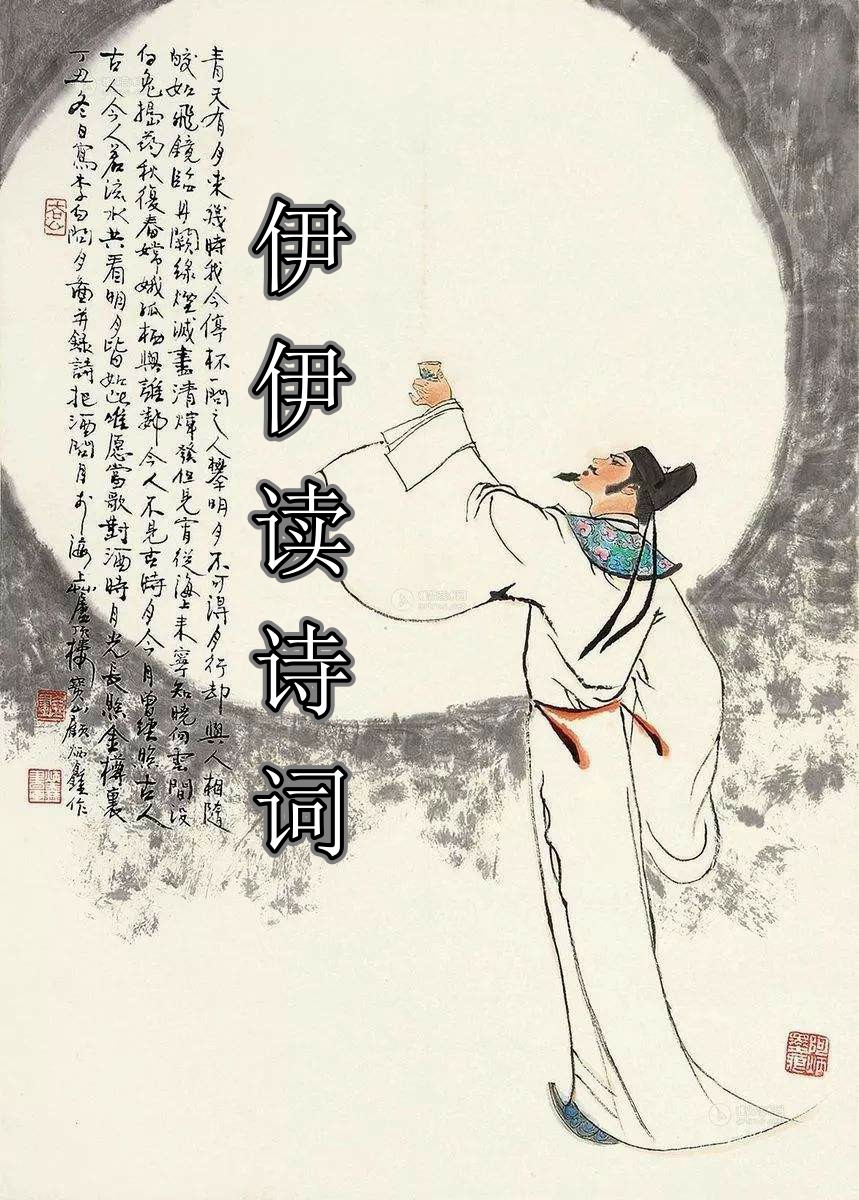 伊伊读诗词
青天有月来幾時我今停杯一問之人攀明月不可得月行却與人相隨
皎如飛鏡臨丹闕綠煙滅盡清煇發但見宵從海上来寧知曉向雲間没
白兔搗药秋復春嫦娥孤栖與誰鄰今人不見古時月今月曾經照古人
古人今人若流水共看明月皆如此唯愿當歌對酒時月光長照金樽裏
丁丑冬日寫李白問月圖并録詩把酒問月於海上廬樓寶山顧炳鑫作